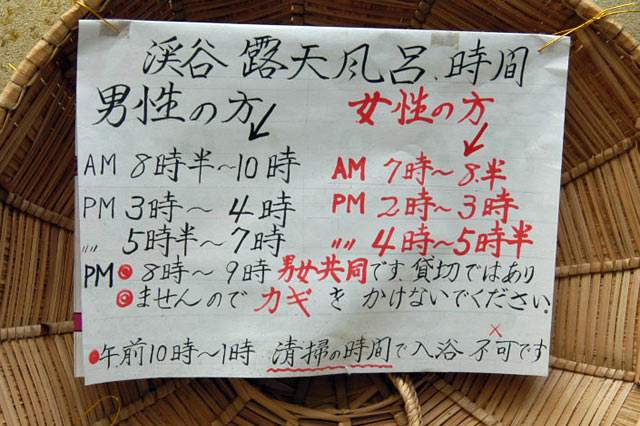 渓谷 露天風呂、時間
男性の方 女性の方
AM 8時半～10時 AM 7時～8.半
PM 3時～4時 PM 2時～3時
〃 5時半～7時 〃 4時～5時半
PM 8時～9時 男女共同です 貸切ではあり
ませんので カギを かけないでください。
午前10時～1時 清掃の時間で入浴 不可です